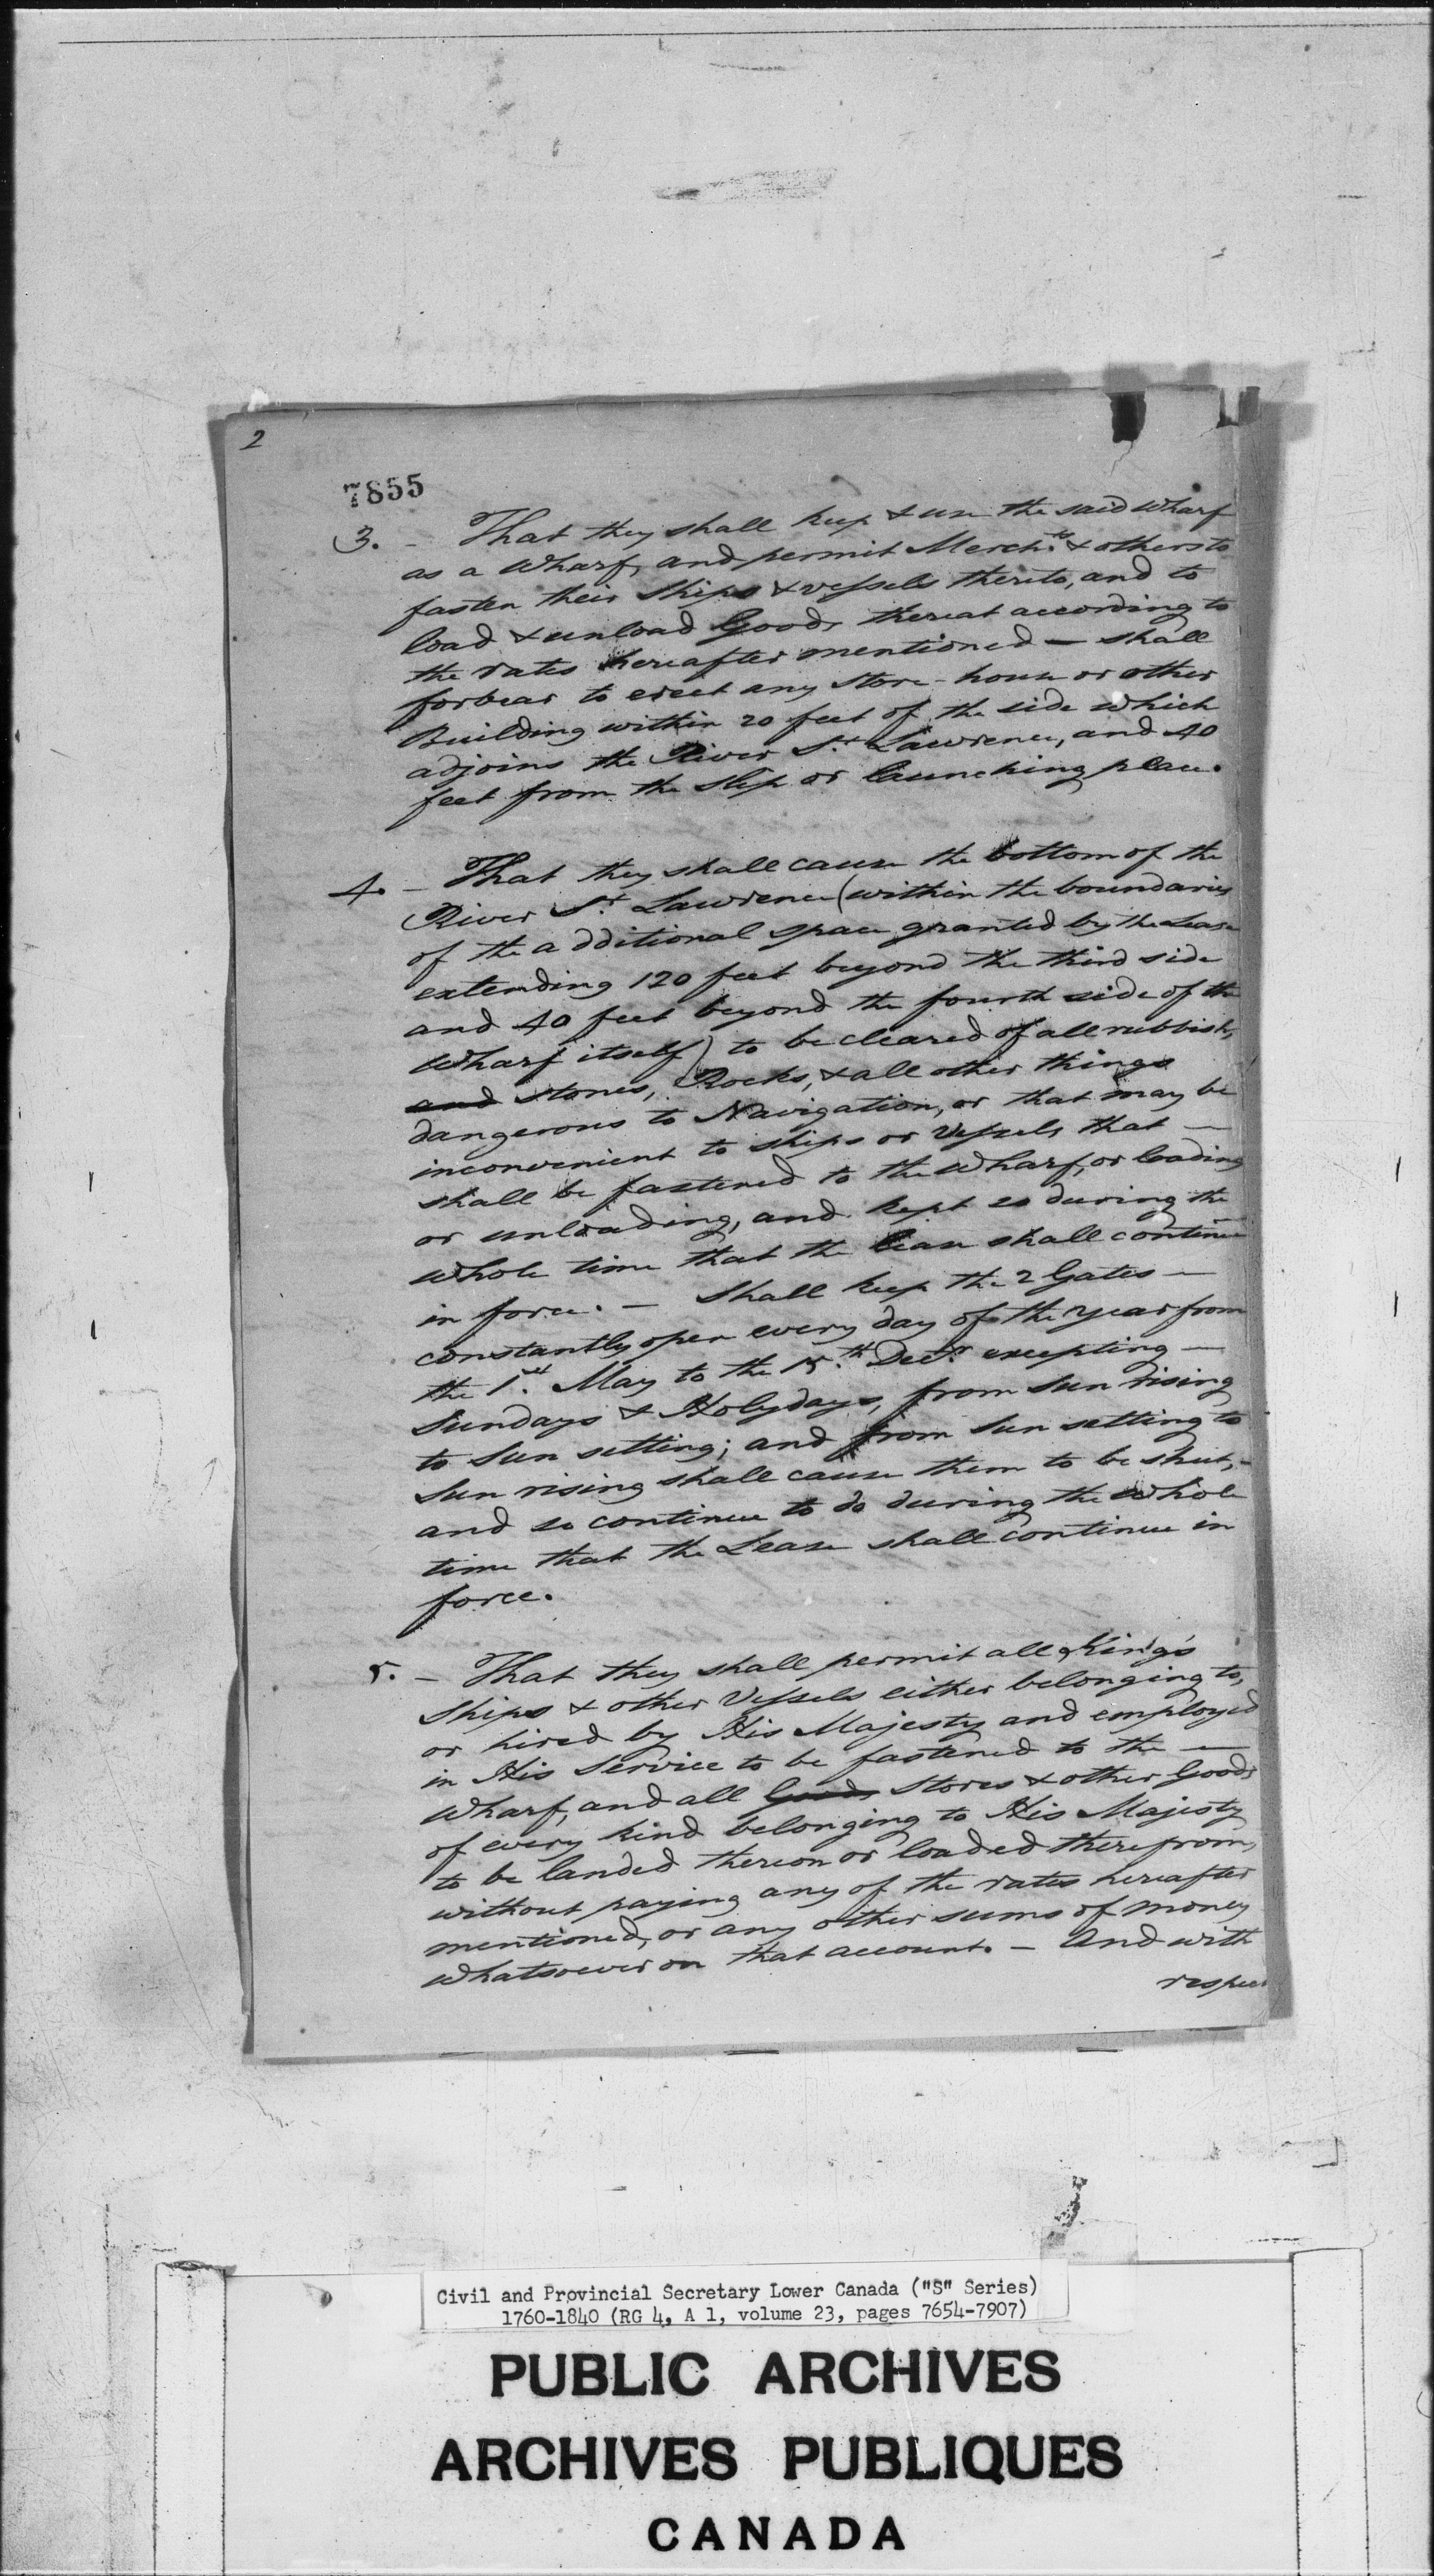 2
7855
3. - That they shall keep & use the said Wharf
as a Wharf, and permit Merch.ts & others to
fasten their Ships & vessels thereto, and to
load & unload Goods thereat according to
the rates hereafter mentioned — shall
forbear to erect any Store-house or other
Building within 20 feet of the side which
adjoins the River St. Lawrence, and 40
feet from the slip or launching place.
4. - That they shall cause the bottom of the
River St. Lawrence (within the boundaries
of the additional space granted by the Lease
extending 120 feet beyond the third side
and 40 feet beyond the fourth side of the
Wharf itself) to be cleared of all rubbish,
and stones, Rocks, & all other things
dangerous to Navigation, or that may be
inconvenient to ships or Vessels that —
shall be fastened to the Wharf, or loading
or unloading, and kept so during the
whole time that the lease shall continue
in force. — Shall keep the 2 Gates —
constantly open every day of the year from
the 1st. May to the 15.th Decr. excepting —
Sundays & Holydays, from Sun rising
to Sun setting; and from Sun setting to
Sun rising shall cause them to be shut, -
and so continue to do during the whole
time that the Lease shall continue in
force.
5. - That they shall permit all King's
Ships & other Vessels either belonging to,
or hired by His Majesty and employed
in His Service to be fastened to the —
Wharf, and all Goods Stores & other Goods
of every kind belonging to His Majesty
to be landed thereon or loaded therefrom,
without paying any of the rates hereafter
mentioned, or any other sums of money
whatsoever on that account. — And with
respect
Civil and Provincial Secretary Lower Canada ("S" Series)
1760-1840 (RG 4, A 1, volume 23, pages 7654-7907)
PUBLIC ARCHIVES
ARCHIVES PUBLIQUES
CANADA